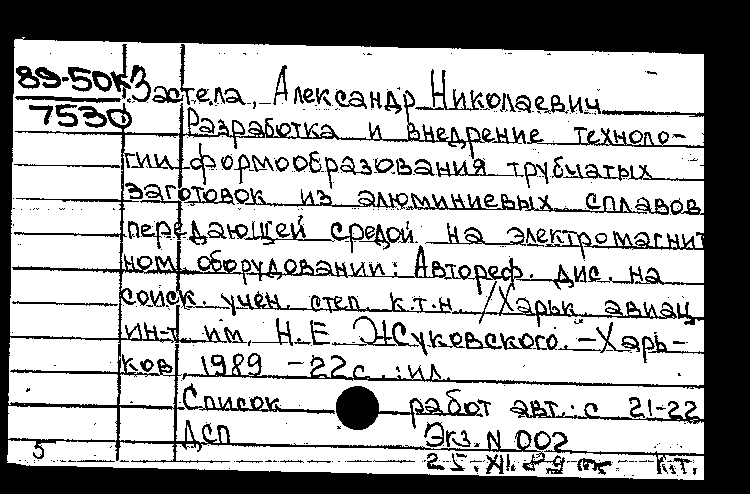 89-50К
7530
Застела, Александр Николаевич
Разработка и внедрение техноло-
гии формообразования трубчатых
заготовок из алюминиевых сплавов
передающей средой на электромагнит
ном оборудовании: Автореф. дис. на
соиск. учен. степ. к.т.н. /Харьк. авиац.
ин-т им. Н.Е. Жуковского. -Харь-
ков, 1989 -22с.:ил.
Список работ авт.: с 21-22
ДСП Экз. N 002
5 25.XI.89 К.Т.